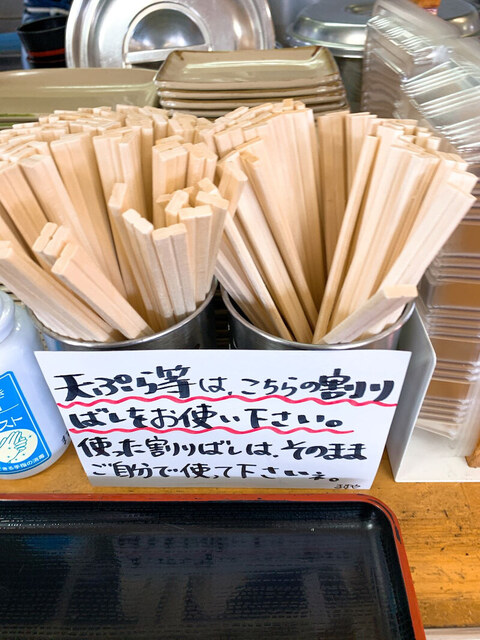 天ぷら等は、こちらの割り
ばしをお使い下さい。
使った割りばしは、そのまま
ご自分で使って下さいネ。